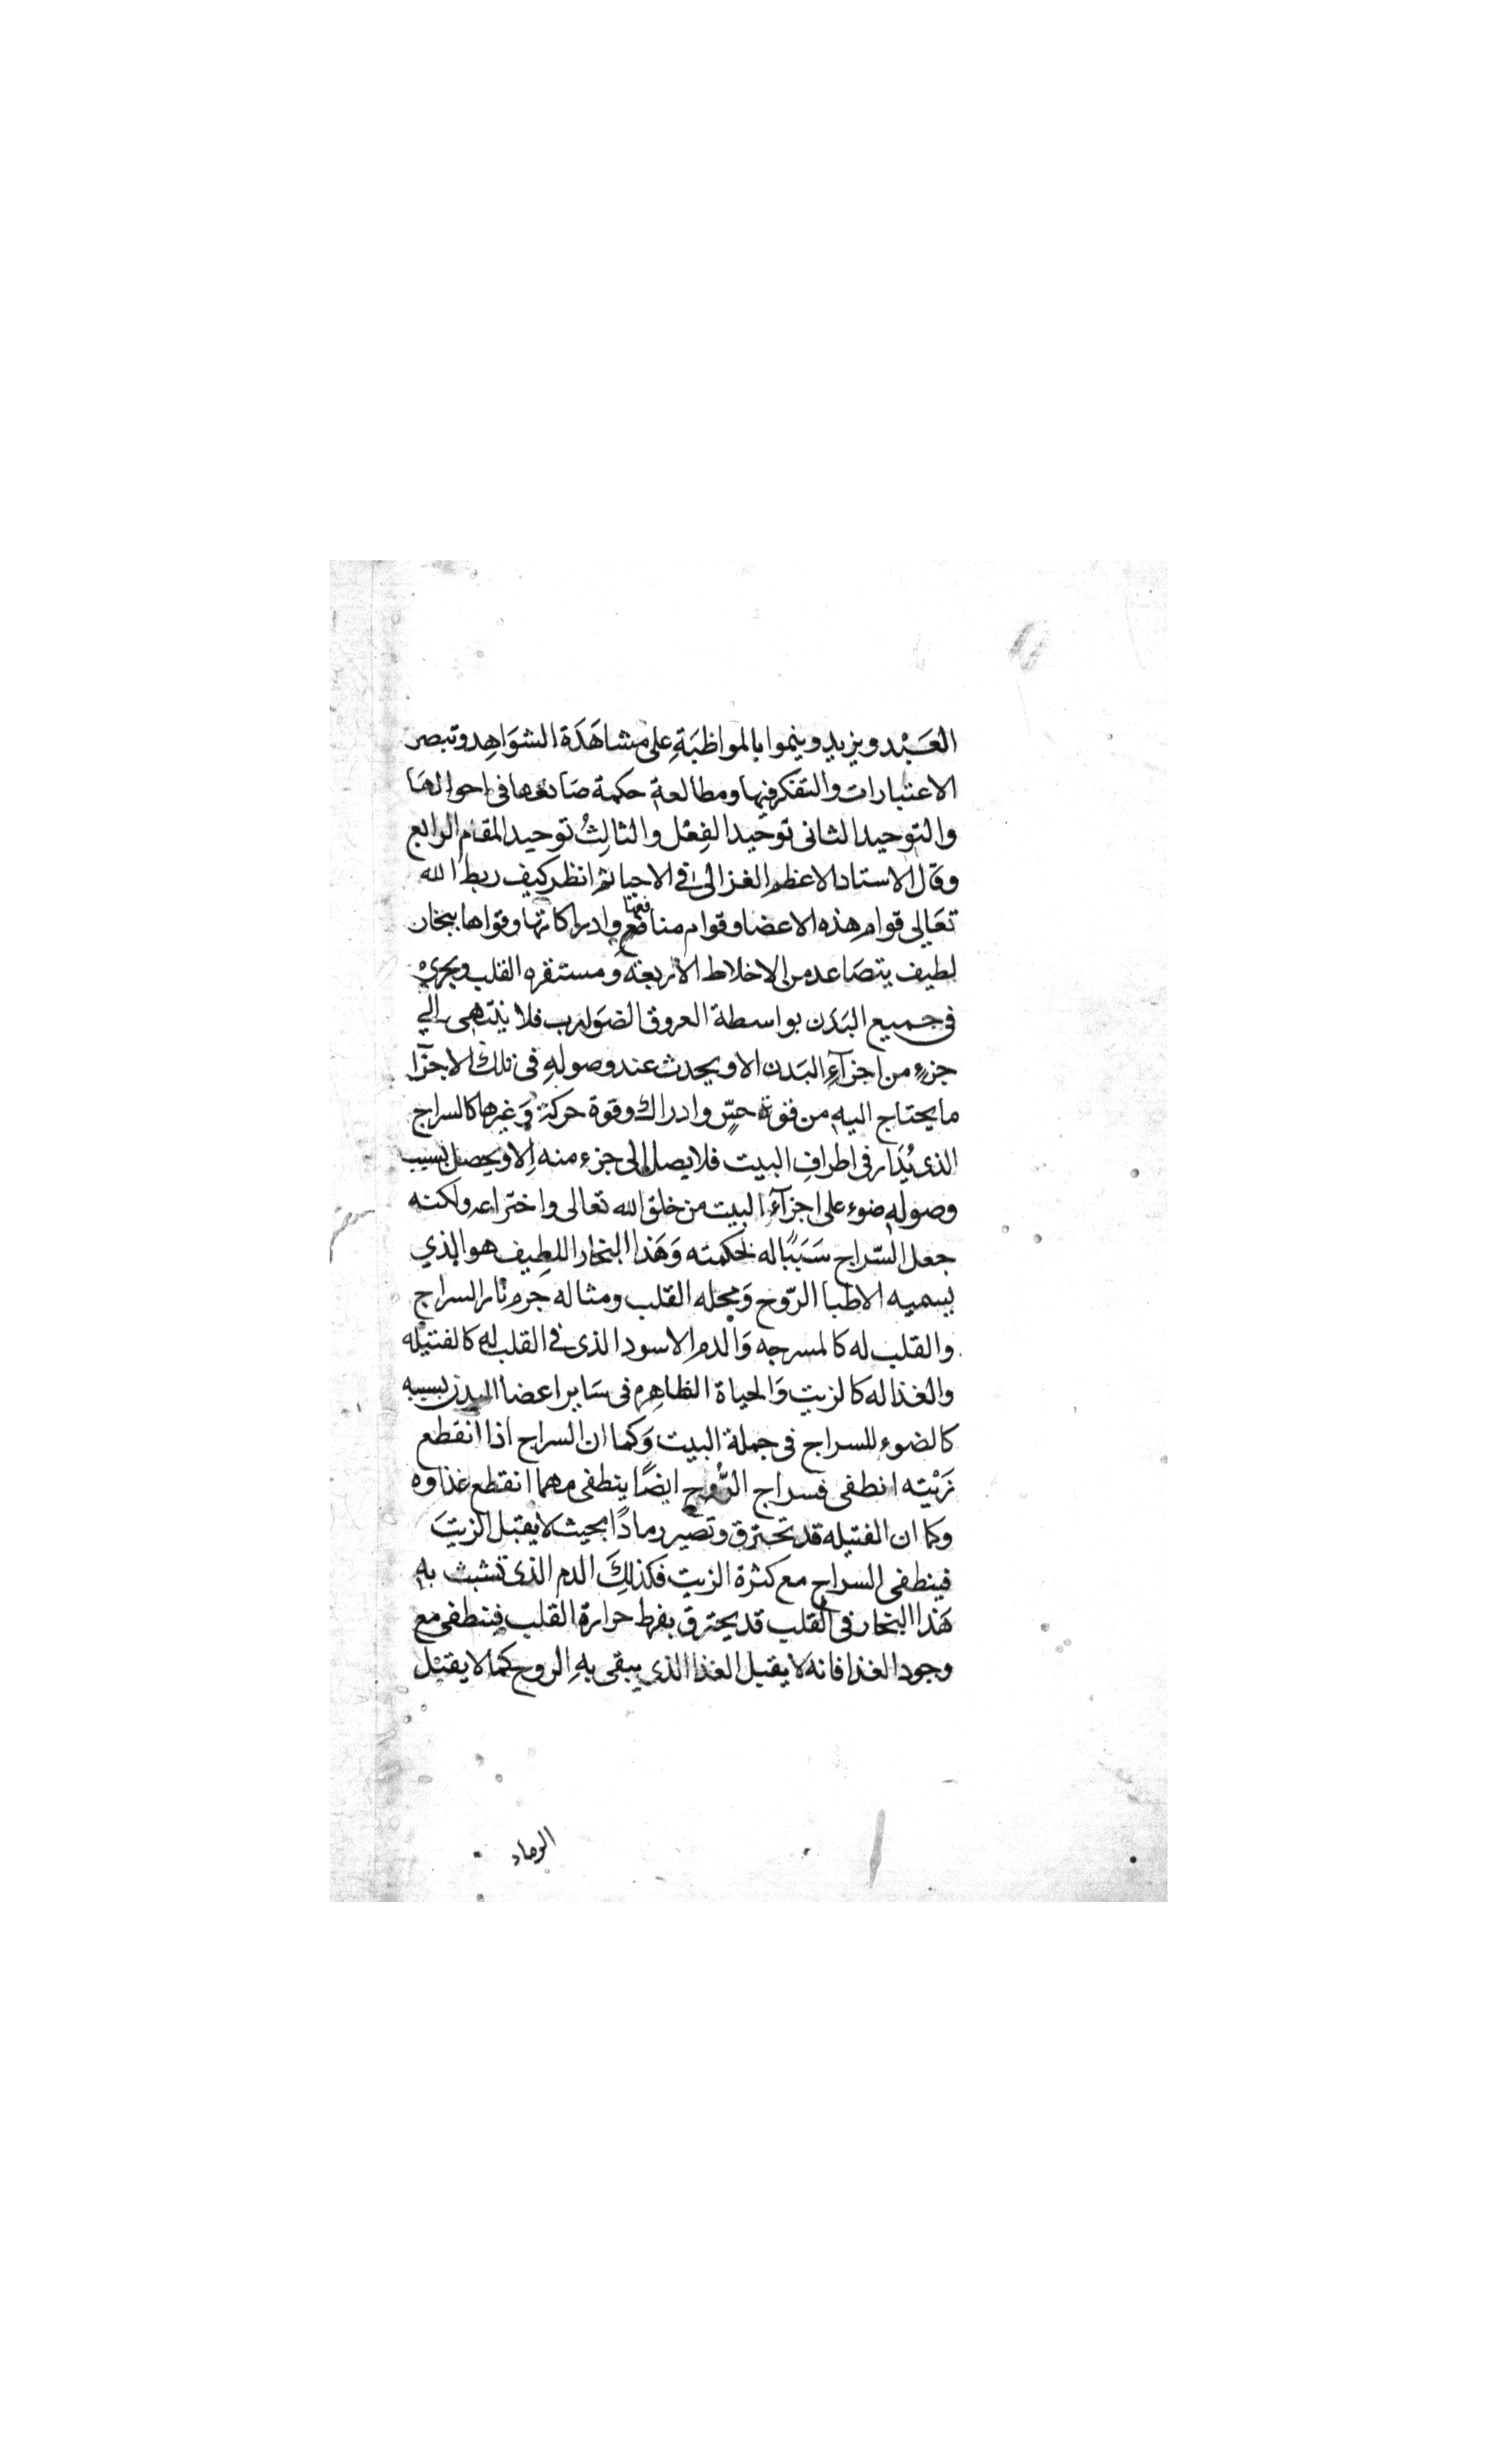 العَبْد ويزيد وينموا بالمواظبَةِ على مشاهَدَة الشوَاهِد وتبصر
الاعتبارات والتفكر فيها ومطالعة حكمة صَانعها فى احوالهَا
والتوحيد الثانى توحيد الفِعْل والثالِثُ توحيد المقام الرابع
وقال الاستاد الاعظم الغزالى فى الاحيا ثم انظر كيف ربط الله
تعَالى قوام هذه الاعضا وقوام منافعها وادراكاتها وقواها ببخار
لطيف يتصَاعد من الاخلاط الاربعة وَمستقره القلب ويجرىْ
فى جميع البَدَن بواسطة العروق الضوَارب فلا ينتهى الي
جزءٍ من اجزآءِ البَدن الا ويحدث عند وصولهِ فى تلك الاجزآ
ما يحتاج اليه من قوة حسٍّ وادراك وقوة حركة وَغيرها كالسراج
الذى يُدَار فى اطرافِ البيت فلا يصل الى جزء منه اِلا ويحصل بسبب
وصولهِ ضوء على اجزآءِ البيت من خلق الله تعالى واختراعه ولكنه
جعل السّراج سَبَبًا له لحكمته وَهَذا البخار اللطِيف هو الذي
يسميه الاطبا الرّوح وَمحله القلب ومثاله جرم نار السراج
والقلب له كالمسرجه وَالدم الاسود الذى فى القلب له كالفتيله
والغذا له كالزيت وَالحياة الظاهِره فى سَاير اعضا البدن بسببه
كالضوء للسراج فى جملة البيت وَكما ان السراج اذا انقطع
زَيْته انطفى فسراج الرُّوح ايضًا ينطفى مهما انقطع غذاوه
وكما ان الفتيله قد تحترق وتصير رمادًا بحيث لا يقبل الزيتَ
فينطفى السراج مع كثرة الزيت فكذلِكَ الدم الذى تشبث بهِ
هَذا البخار فى القلب قد يحترق بفرط حرارة القلب فينطفى مع
وجود الغذا فانه لا يقبل الغذا الذى يبقى بهِ الروح كما لا يقبل
الرماد